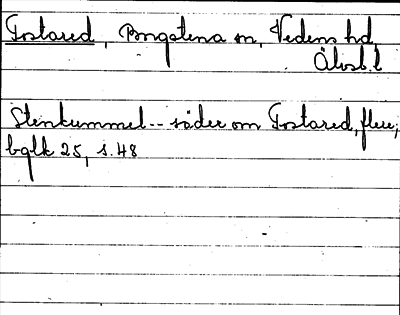 Tostared, Bogstena sn, Vedens hd,
Älvsb. l
Stenkummel -- söder om Tostared, flere,
bglk 25, s. 48